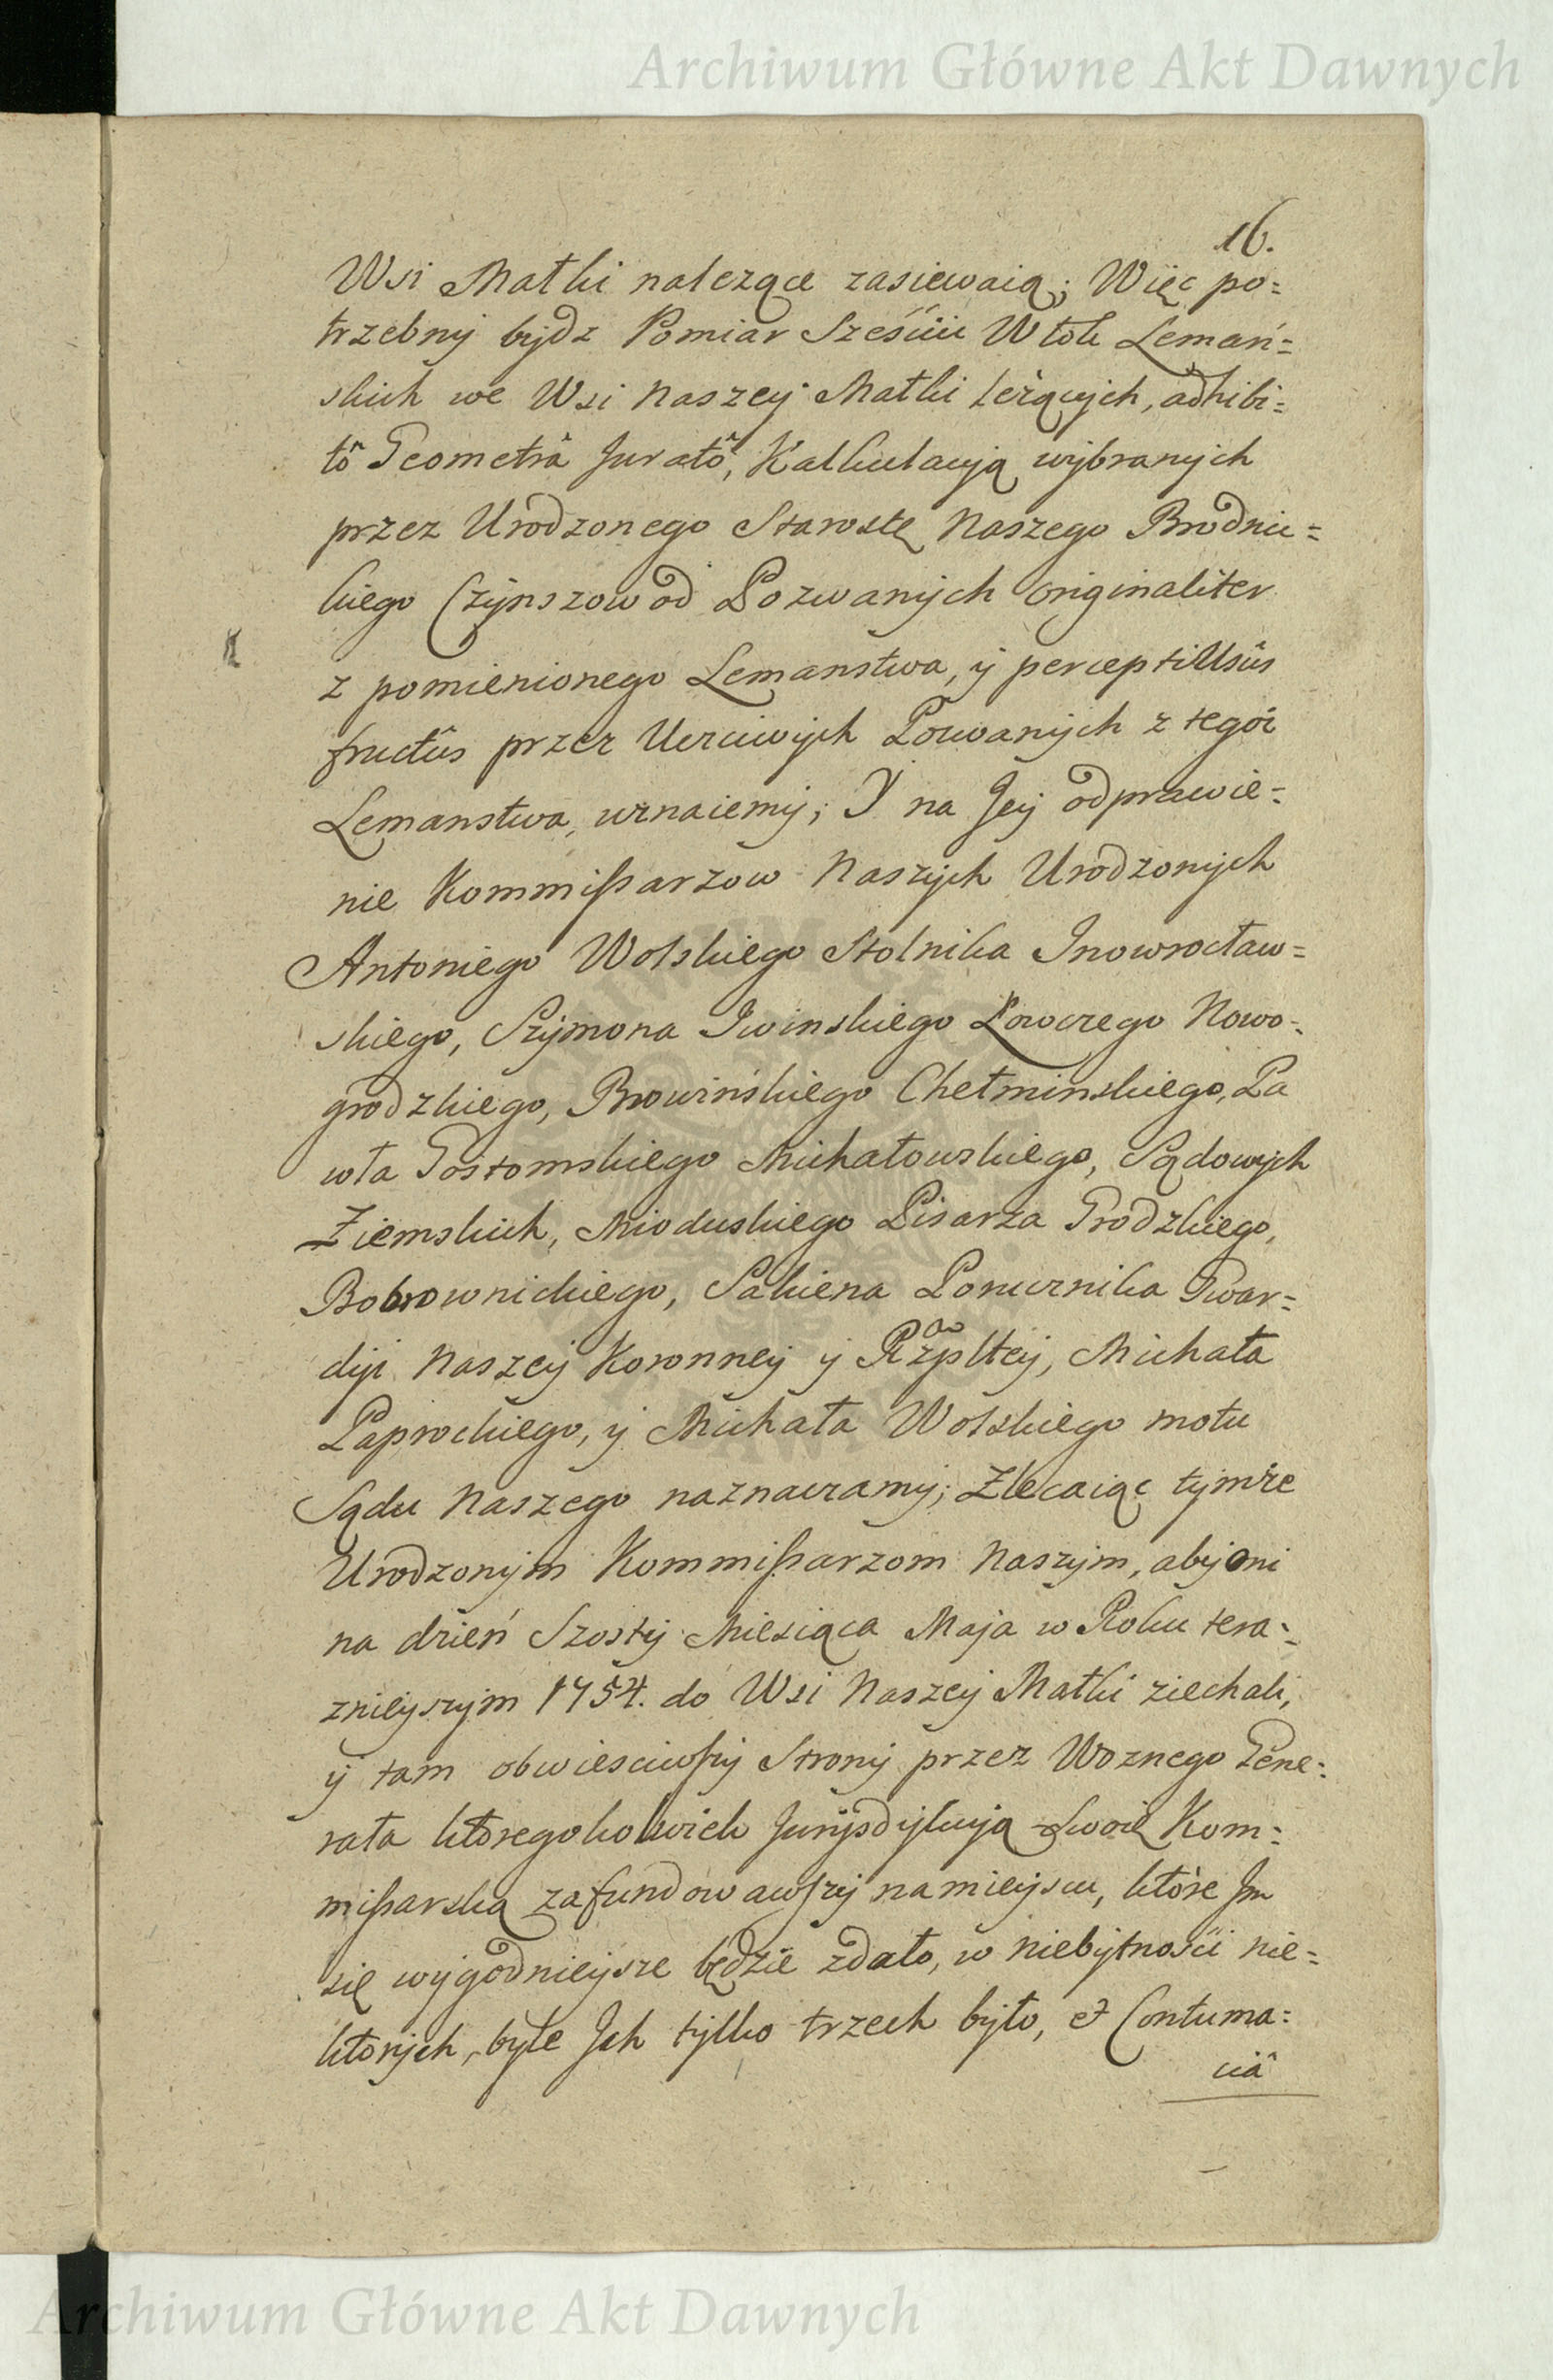 Archiwum Główne Akt Dawnych
16.
Wsi Małki nalezące zasiewaią; Więc po=
trzebny bydz Pomiar Sześciu Włok Lemań=
skich we Wsi Naszey Małki leżących, adhibi=
tô Geometrâ Juratô, Kalkulacyą wybranych
przez Urodzonego Starostę Naszego Brodnic=
kiego Czynszow od Pozwanych originaliter
z pomienionego Lemanstwa, y percepti Usûs
fructûs przez Uczciwych Pozwanych z tegoż
Lemanstwa, uznaiemy; Y na Jey odprawie=
nie Kommissarzow Naszych Urodzonych
Antoniego Wolskiego Stolnika Inowrocław=
skiego, Szymona Iwinskiego Łowczego Nowo=
grodzkiego, Browińskiego Chełminskiego, Pa
wła Gostomskiego Michałowskiego, Sądowych
Ziemskich, Mioduskiego Pisarza Grodzkiego,
Bobrownickiego, Sakiena Porucznika Gwar=
dyi Naszey Koronney y Rzpltey, Michała
Paprockiego, y Michała Wolskiego motu
Sądu Naszego naznaczamy; Zlecaiąc tymże
Urodzonym Kommissarzom Naszym, aby oni
na dzień Szosty Miesiąca Maja w Roku tera=
znieyszym 1754. do Wsi Naszey Małki ziechali,
y tam obwiesciwszy Strony przez Woznego Gene=
rała ktoregokolwiek Jurysdykcyą Swoię Kom=
missarską zafundowawszy na mieyscu, które Im
się wygodnieysze będzie zdało, w niebytności nie=
ktorych, byle Jch tylko trzech było, et Contuma=
ciâ
Archiwum Główne Akt Dawnych